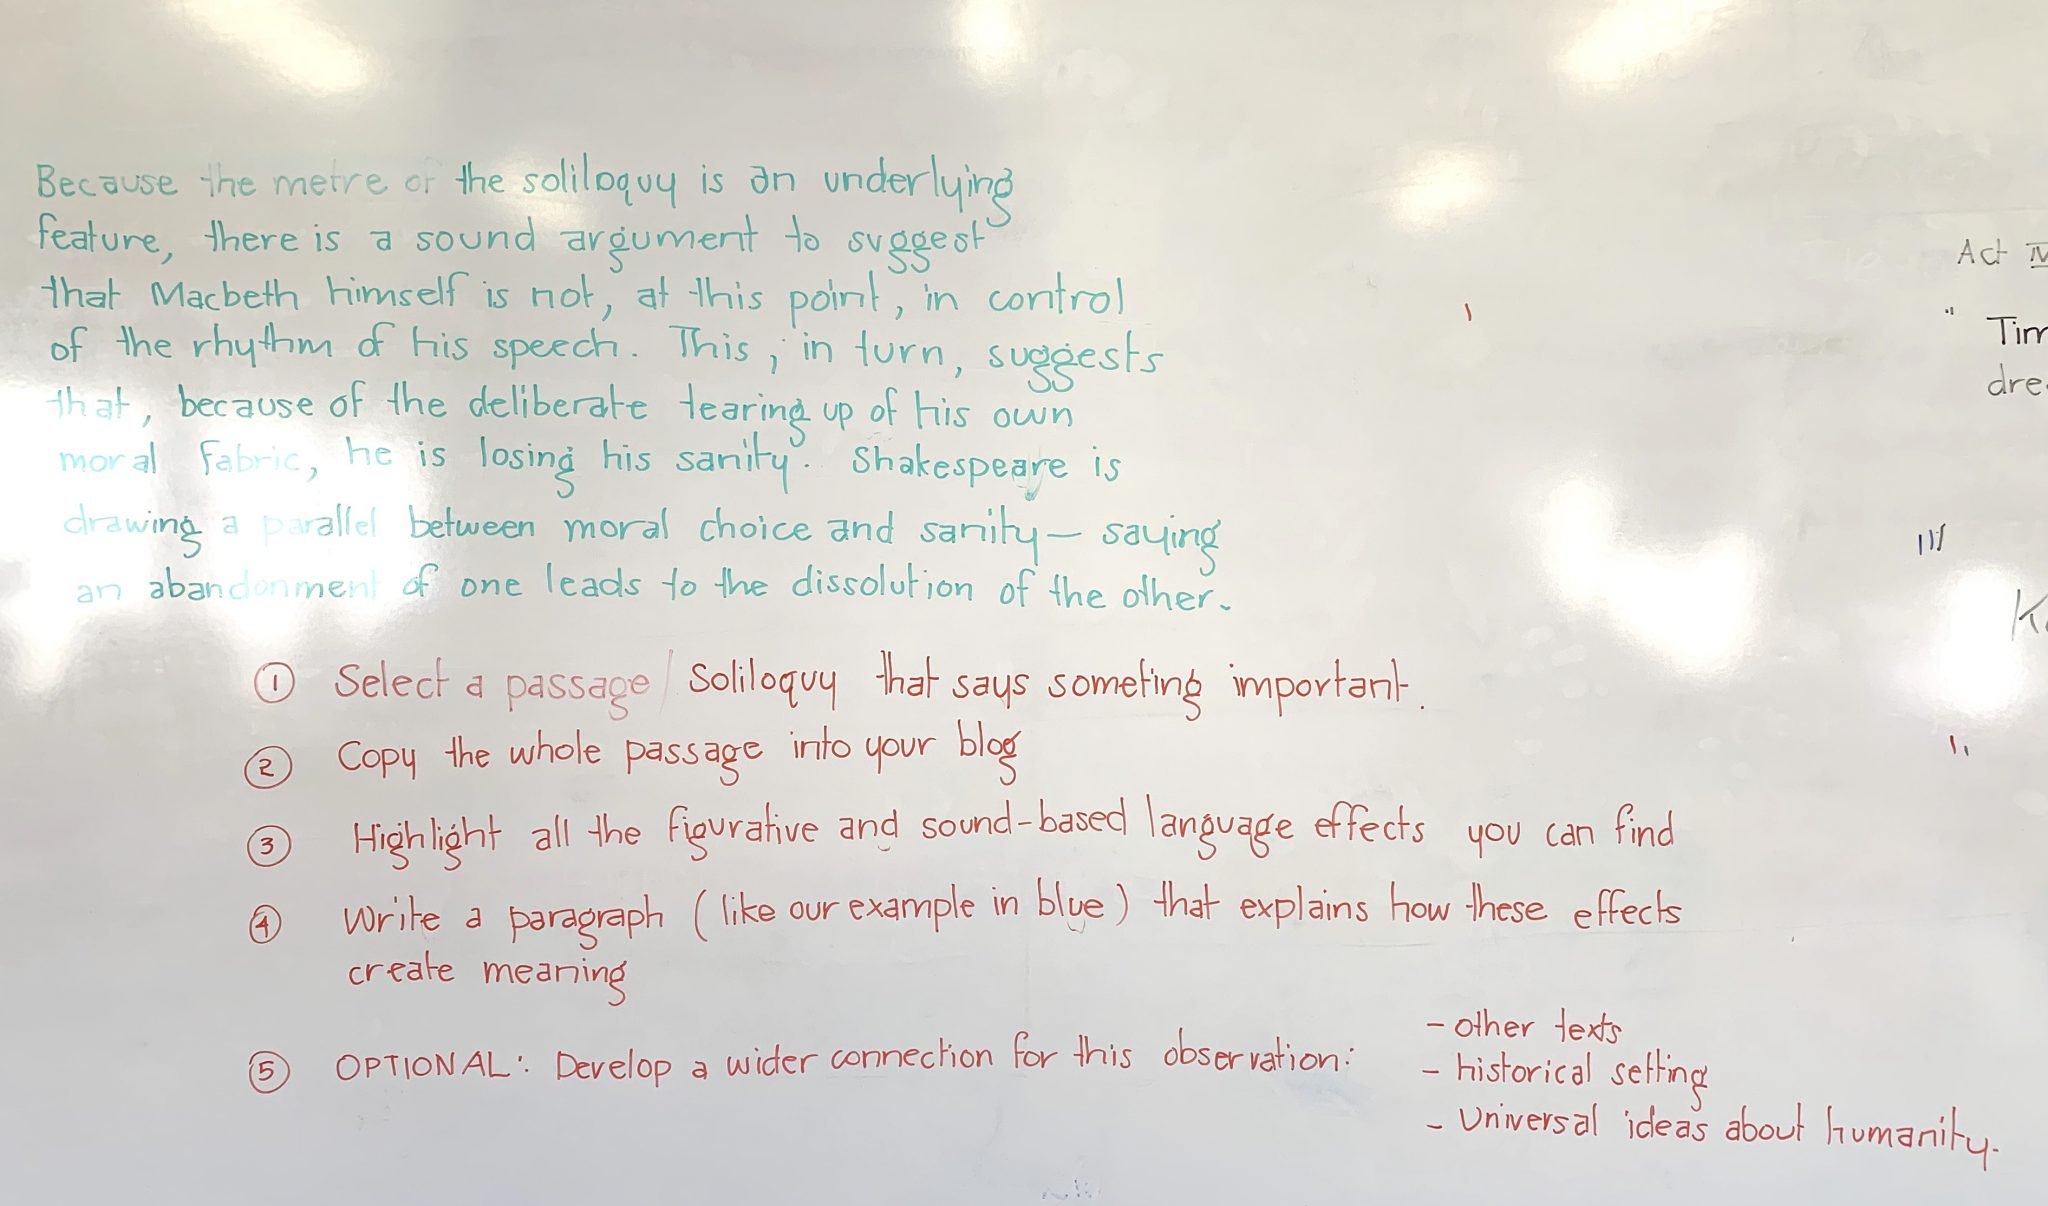 Because the metre of the soliloquy is an underlying
feature, there is a sound argument to suggest
that Macbeth himself is not, at this point, in control
of the rhythm of his speech. This, in turn, suggests
that, because of the deliberate tearing up of his own
moral fabric, he is losing his sanity. Shakespeare is
drawing a parallel between moral choice and sanity – saying
an abandonment of one leads to the dissolution of the other.
① Select a passage / Soliloquy that says someting important.
② Copy the whole passage into your blog
③ Highlight all the figurative and sound-based language effects you can find
④ Write a paragraph (like our example in blue) that explains how these effects
create meaning
⑤ OPTIONAL: Develop a wider connection for this observation:
- other texts
- historical setting
- Universal ideas about humanity.
Act IV
" Tim
dre